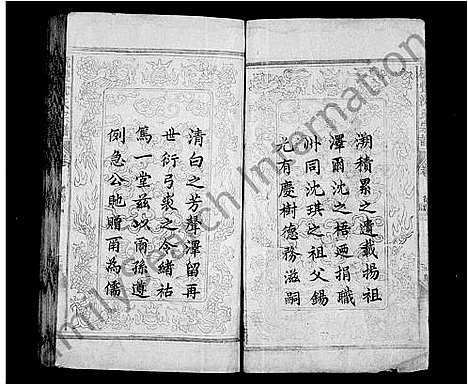 溯積累之遺載揚祖
澤爾沈之梧廼捐職
州同沈琪之祖父錫
尤有慶樹德務滋嗣
清白之芳聲澤留再
世衍弓裘之令緒祜
篤一堂茲以爾孫遵
例急公貤贈爾為儒